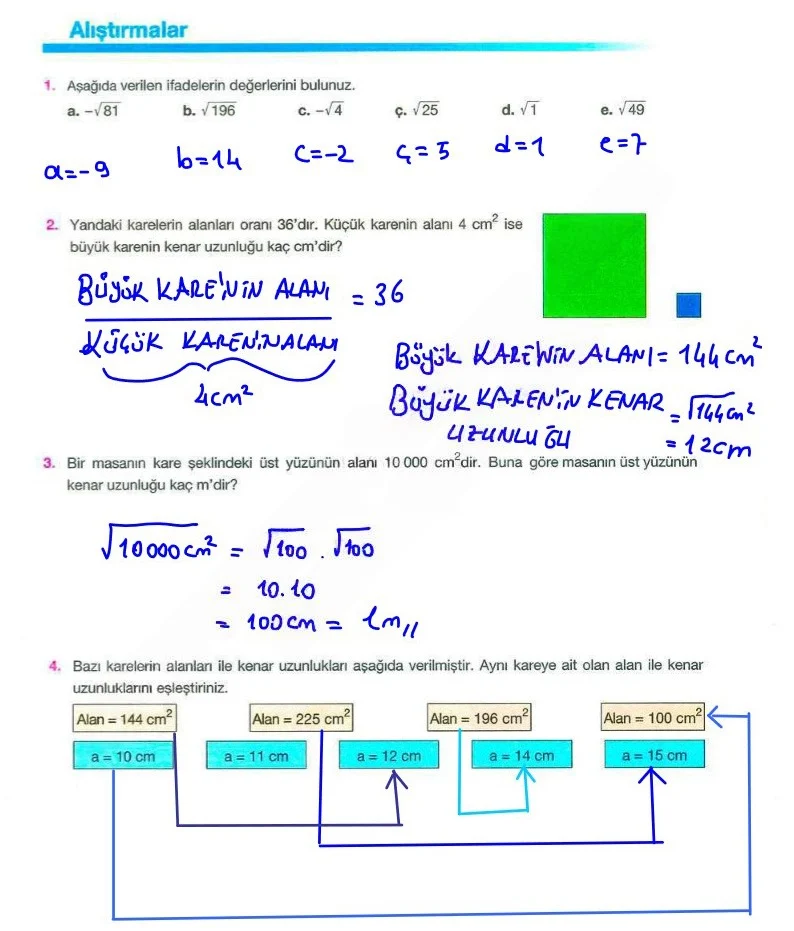 Alıştırmalar
1. Aşağıda verilen ifadelerin değerlerini bulunuz.
a. −√81 b. √196 c. −√4 ç. √25 d. √1 e. √49
a=-9 b=14 c=-2 ç=5 d=1 e=7
2. Yandaki karelerin alanları oranı 36'dır. Küçük karenin alanı 4 cm² ise
büyük karenin kenar uzunluğu kaç cm'dir?
BÜYÜK KARE'NİN ALANI = 36
KÜÇÜK KARENİN ALANI
4cm²
BÜYÜK KARE'NİN ALANI = 144 cm²
BÜYÜK KAREN'İN KENAR = √144 cm²
UZUNLUĞU = 12cm
3. Bir masanın kare şeklindeki üst yüzünün alanı 10 000 cm²dir. Buna göre masanın üst yüzünün
kenar uzunluğu kaç m'dir?
√10000 cm² = √100 . √100
= 10.10
= 100 cm = 1m //
4. Bazı karelerin alanları ile kenar uzunlukları aşağıda verilmiştir. Aynı kareye ait olan alan ile kenar
uzunluklarını eşleştiriniz.
Alan = 144 cm² Alan = 225 cm² Alan = 196 cm² Alan = 100 cm²
a = 10 cm a = 11 cm a = 12 cm a = 14 cm a = 15 cm